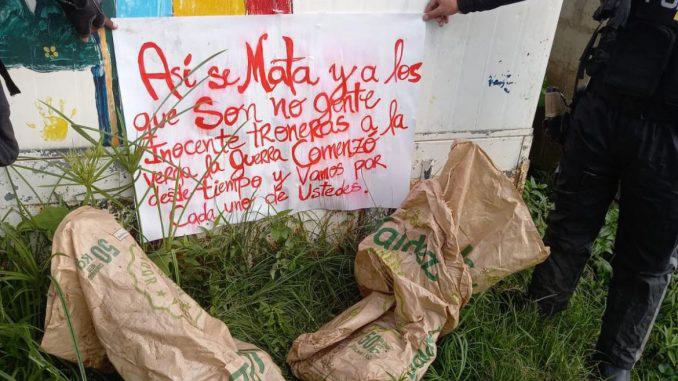 Así se Mata y a los
que Son no gente
Inocente troneras a la
verga la guerra Comenzó
desde tiempo y Vamos por
Cada uno de Ustedes.
50 KG
50